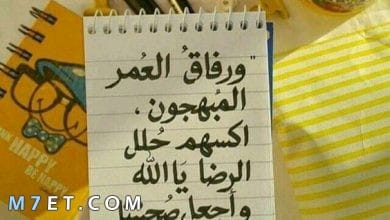 "ورفاقُ العُمر
المُبهجون،
اكسهم حُلل
الرضا يَا الله
وأجعل صُحبتنا
HAPPY
BE HAPPY
M7ET.COM